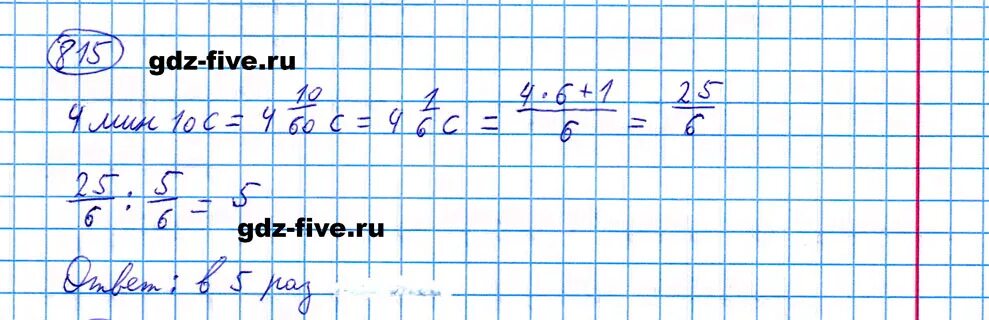 815
gdz-five.ru
4 мин 10 с = 4 10/60 с = 4 1/6 с = 4·6+1/6 = 25/6
25/6 : 5/6 = 5
gdz-five.ru
Ответ: в 5 раз